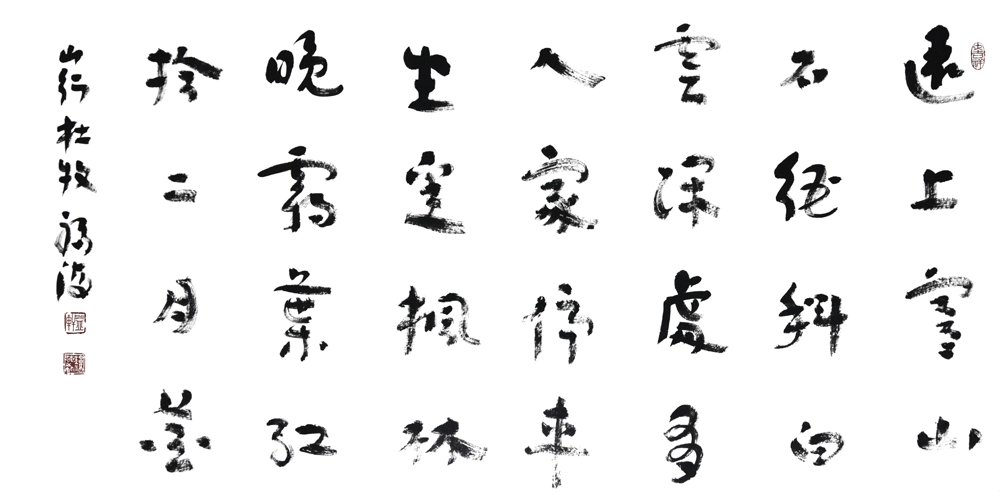 遠上寒山
石徑斜白
雲深處有
人家停車
坐愛楓林
晚霜葉紅
於二月花
山行杜牧